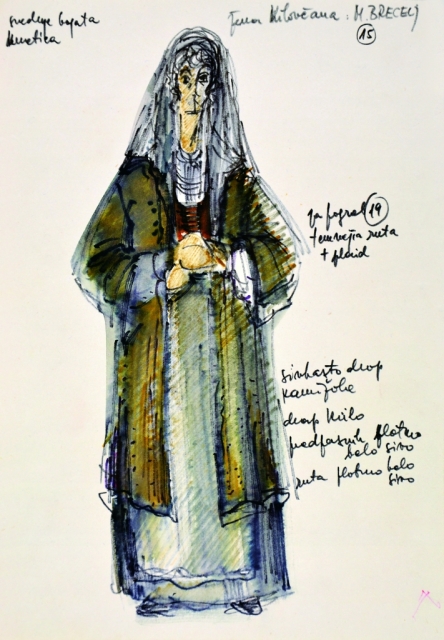 srednje bogata
kmetica
žena Kilovčana : M. BRECELJ
15
za pogreb 19
temnejša ruta
+ plaid
sivkasto drap
kamižola
drap krilo
predpasnik platno
belo sivo
ruta platno belo
sivo